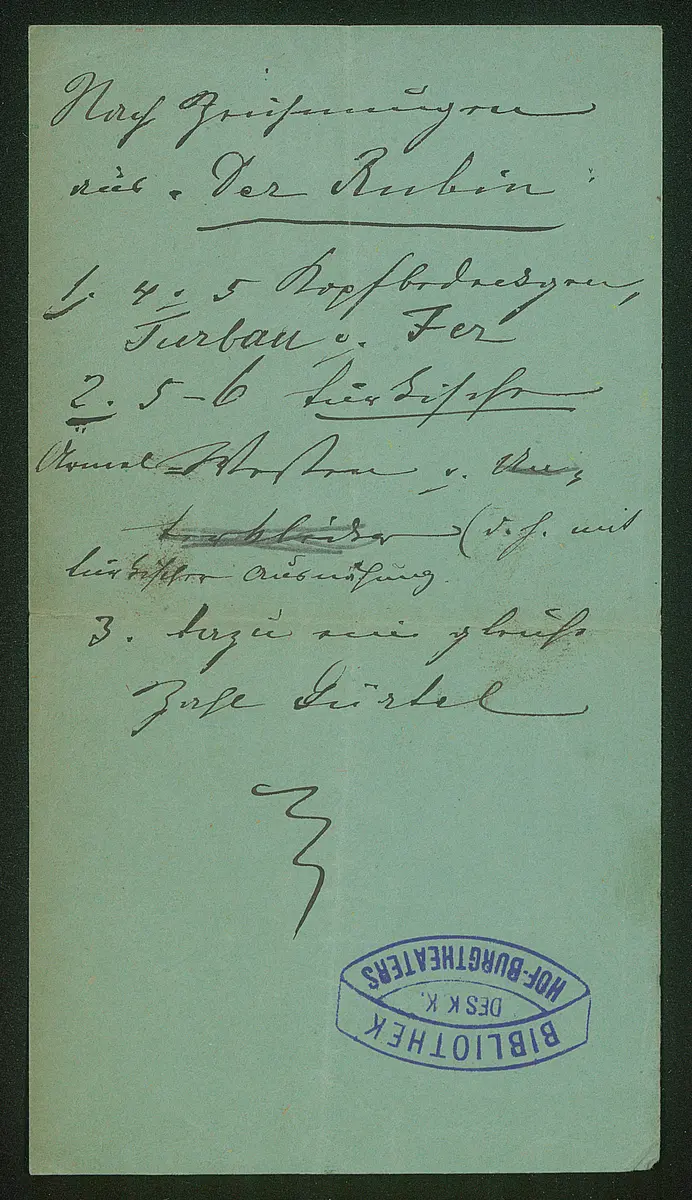 Nach Zeichnungen
aus „Der Rubin“
1. 4 o. 5 Kopfbedeckgen,
Turban u. Fez
2. 5-6 türkische
Ärmel-Westen u. Un-
terkleider (d. h. mit
türkischer Ausnähung
3. dazu eine gleiche
Zahl Gürtel
BIBLIOTHEK
DES K. K.
HOF-BURGTHEATERS